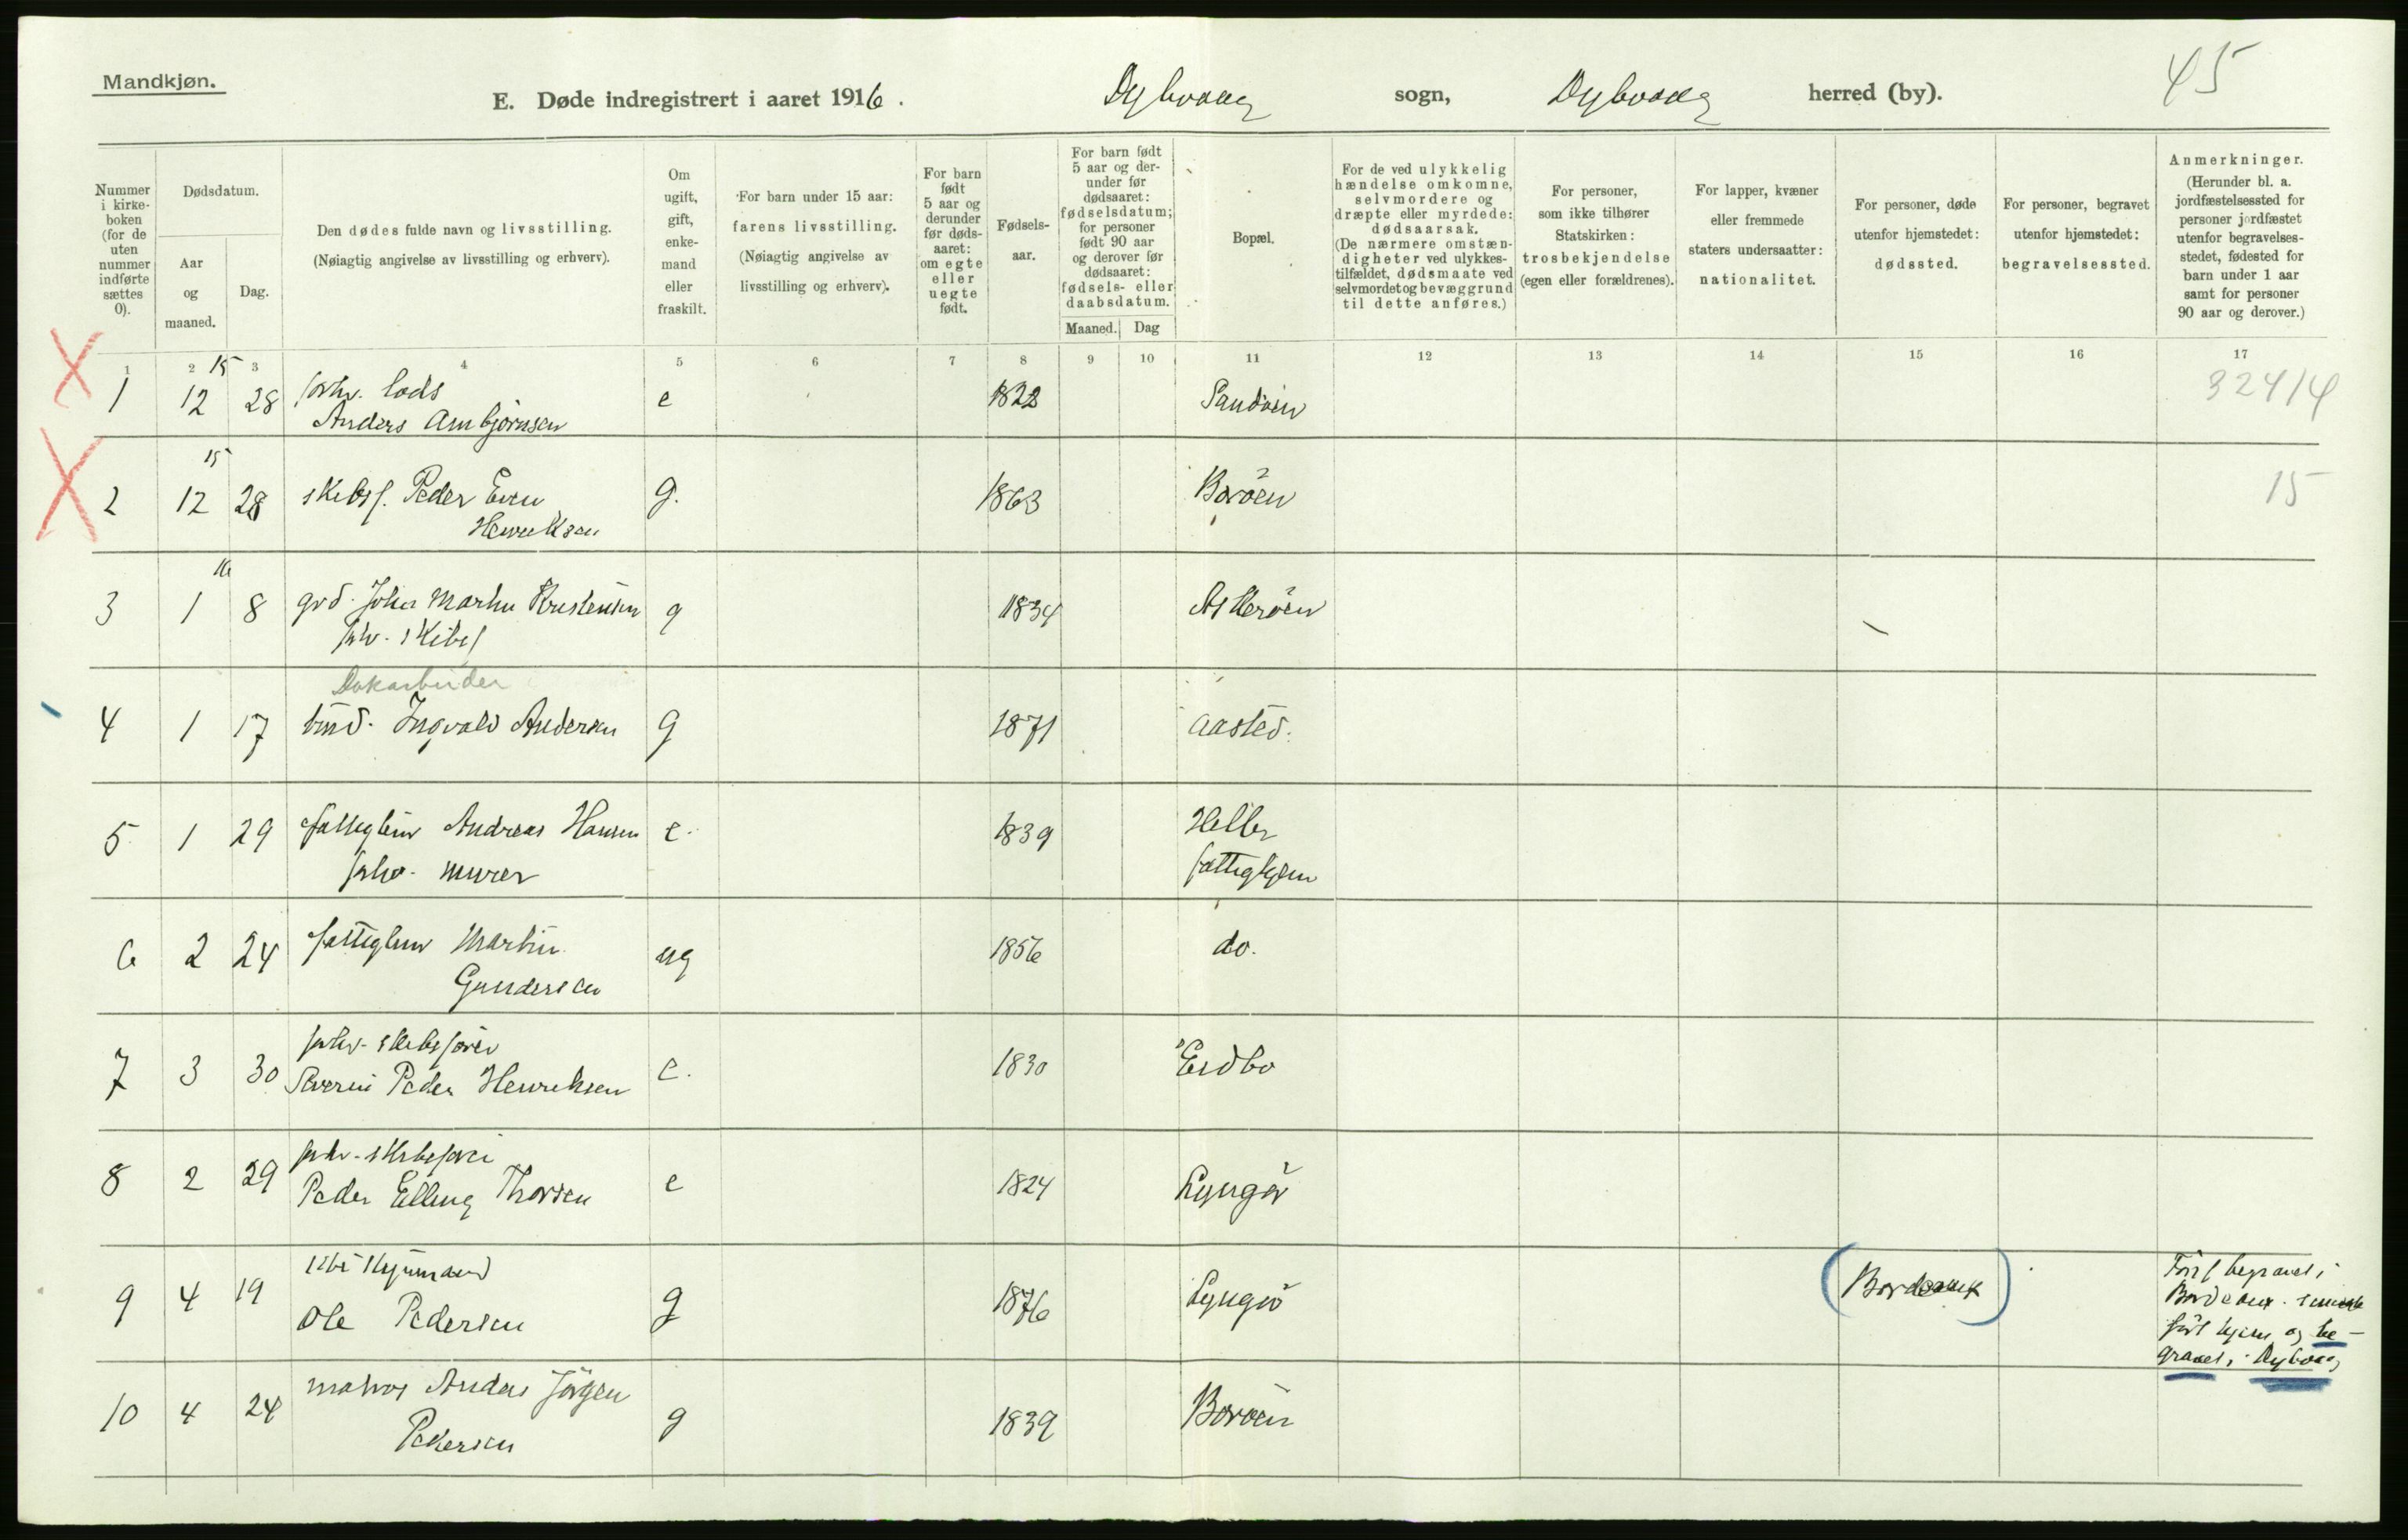 Mandkjøn.
E. Døde indregistrert i aaret 1916.
Dybvaag sogn, Dybvaag herred (by).
45
Nummer i kirke-boken (for de uten nummer indførte sættes 0).
Dødsdatum.
Aar og maaned.
Dag.
Den dødes fulde navn og livsstilling.
(Nøiagtig angivelse av livsstilling og erhverv).
Om ugift, gift, enke-mand eller fraskilt.
For barn under 15 aar:
farens livsstilling.
(Nøiagtig angivelse av livsstilling og erhverv).
For barn født 5 aar og derunder før døds-aaret: om egte eller uegte født.
Fødsels-aar.
For barn født 5 aar og der-under før dødsaaret: fødselsdatum; for personer født 90 aar og derover før dødsaaret: fødsels- eller daabsdatum.
Maaned. Dag
Bopæl.
For de ved ulykkelig hændelse omkomne, selvmordere og dræpte eller myrdede: dødsaarsak.
(De nærmere omstæn-digheter ved ulykkes-tilfældet, dødsmaate ved selvmordet og bevæggrund til dette anføres.)
For personer, som ikke tilhører Statskirken: trosbekjendelse (egen eller forældrenes).
For lapper, kvæner eller fremmede staters undersaatter: nationalitet.
For personer, døde utenfor hjemstedet: dødssted.
For personer, begravet utenfor hjemstedet: begravelsessted.
Anmerkninger.
(Herunder bl. a. jordfæstelsessted for personer jordfæstet utenfor begravelses-stedet, fødested for barn under 1 aar samt for personer 90 aar og derover.)
1 2 3 4 5 6 7 8 9 10 11 12 13 14 15 16 17
15
1 12 28 forhv. lods e 1822 Sandøen 324/4
Anders Ambjørnsen
15
2 12 28 skibsf. Peder Even g. 1863 Borøen 15
Henriksen
16
3 1 8 grd. Johan Martin Kristensen g 1834 Askerøen
fhv. skibsf
Dokarbeider
4 1 17 Ingvald Andersen g 1871 Aasted.
5 1 29 fattiglem Andreas Hansen e. 1839 Helle
fhv. murer fattighjem
6 2 24 fattiglem Martin ug 1856 do.
Gundersen
forhv. skibsfører
7 3 30 Severin Peder Henriksen e. 1830 Eidbo
forhv. skibsfører
8 2 29 Peder Elling Thorsen e 1824 Lyngør
9 4 19 Ole Pedersen g 1876 Lyngør (Bordeaux)
Først begravet i
Bordeaux. senere
ført hjem og be-
gravet i Dybvaag
10 4 24 matros Anders Jørgen g 1839 Borøen
Pedersen